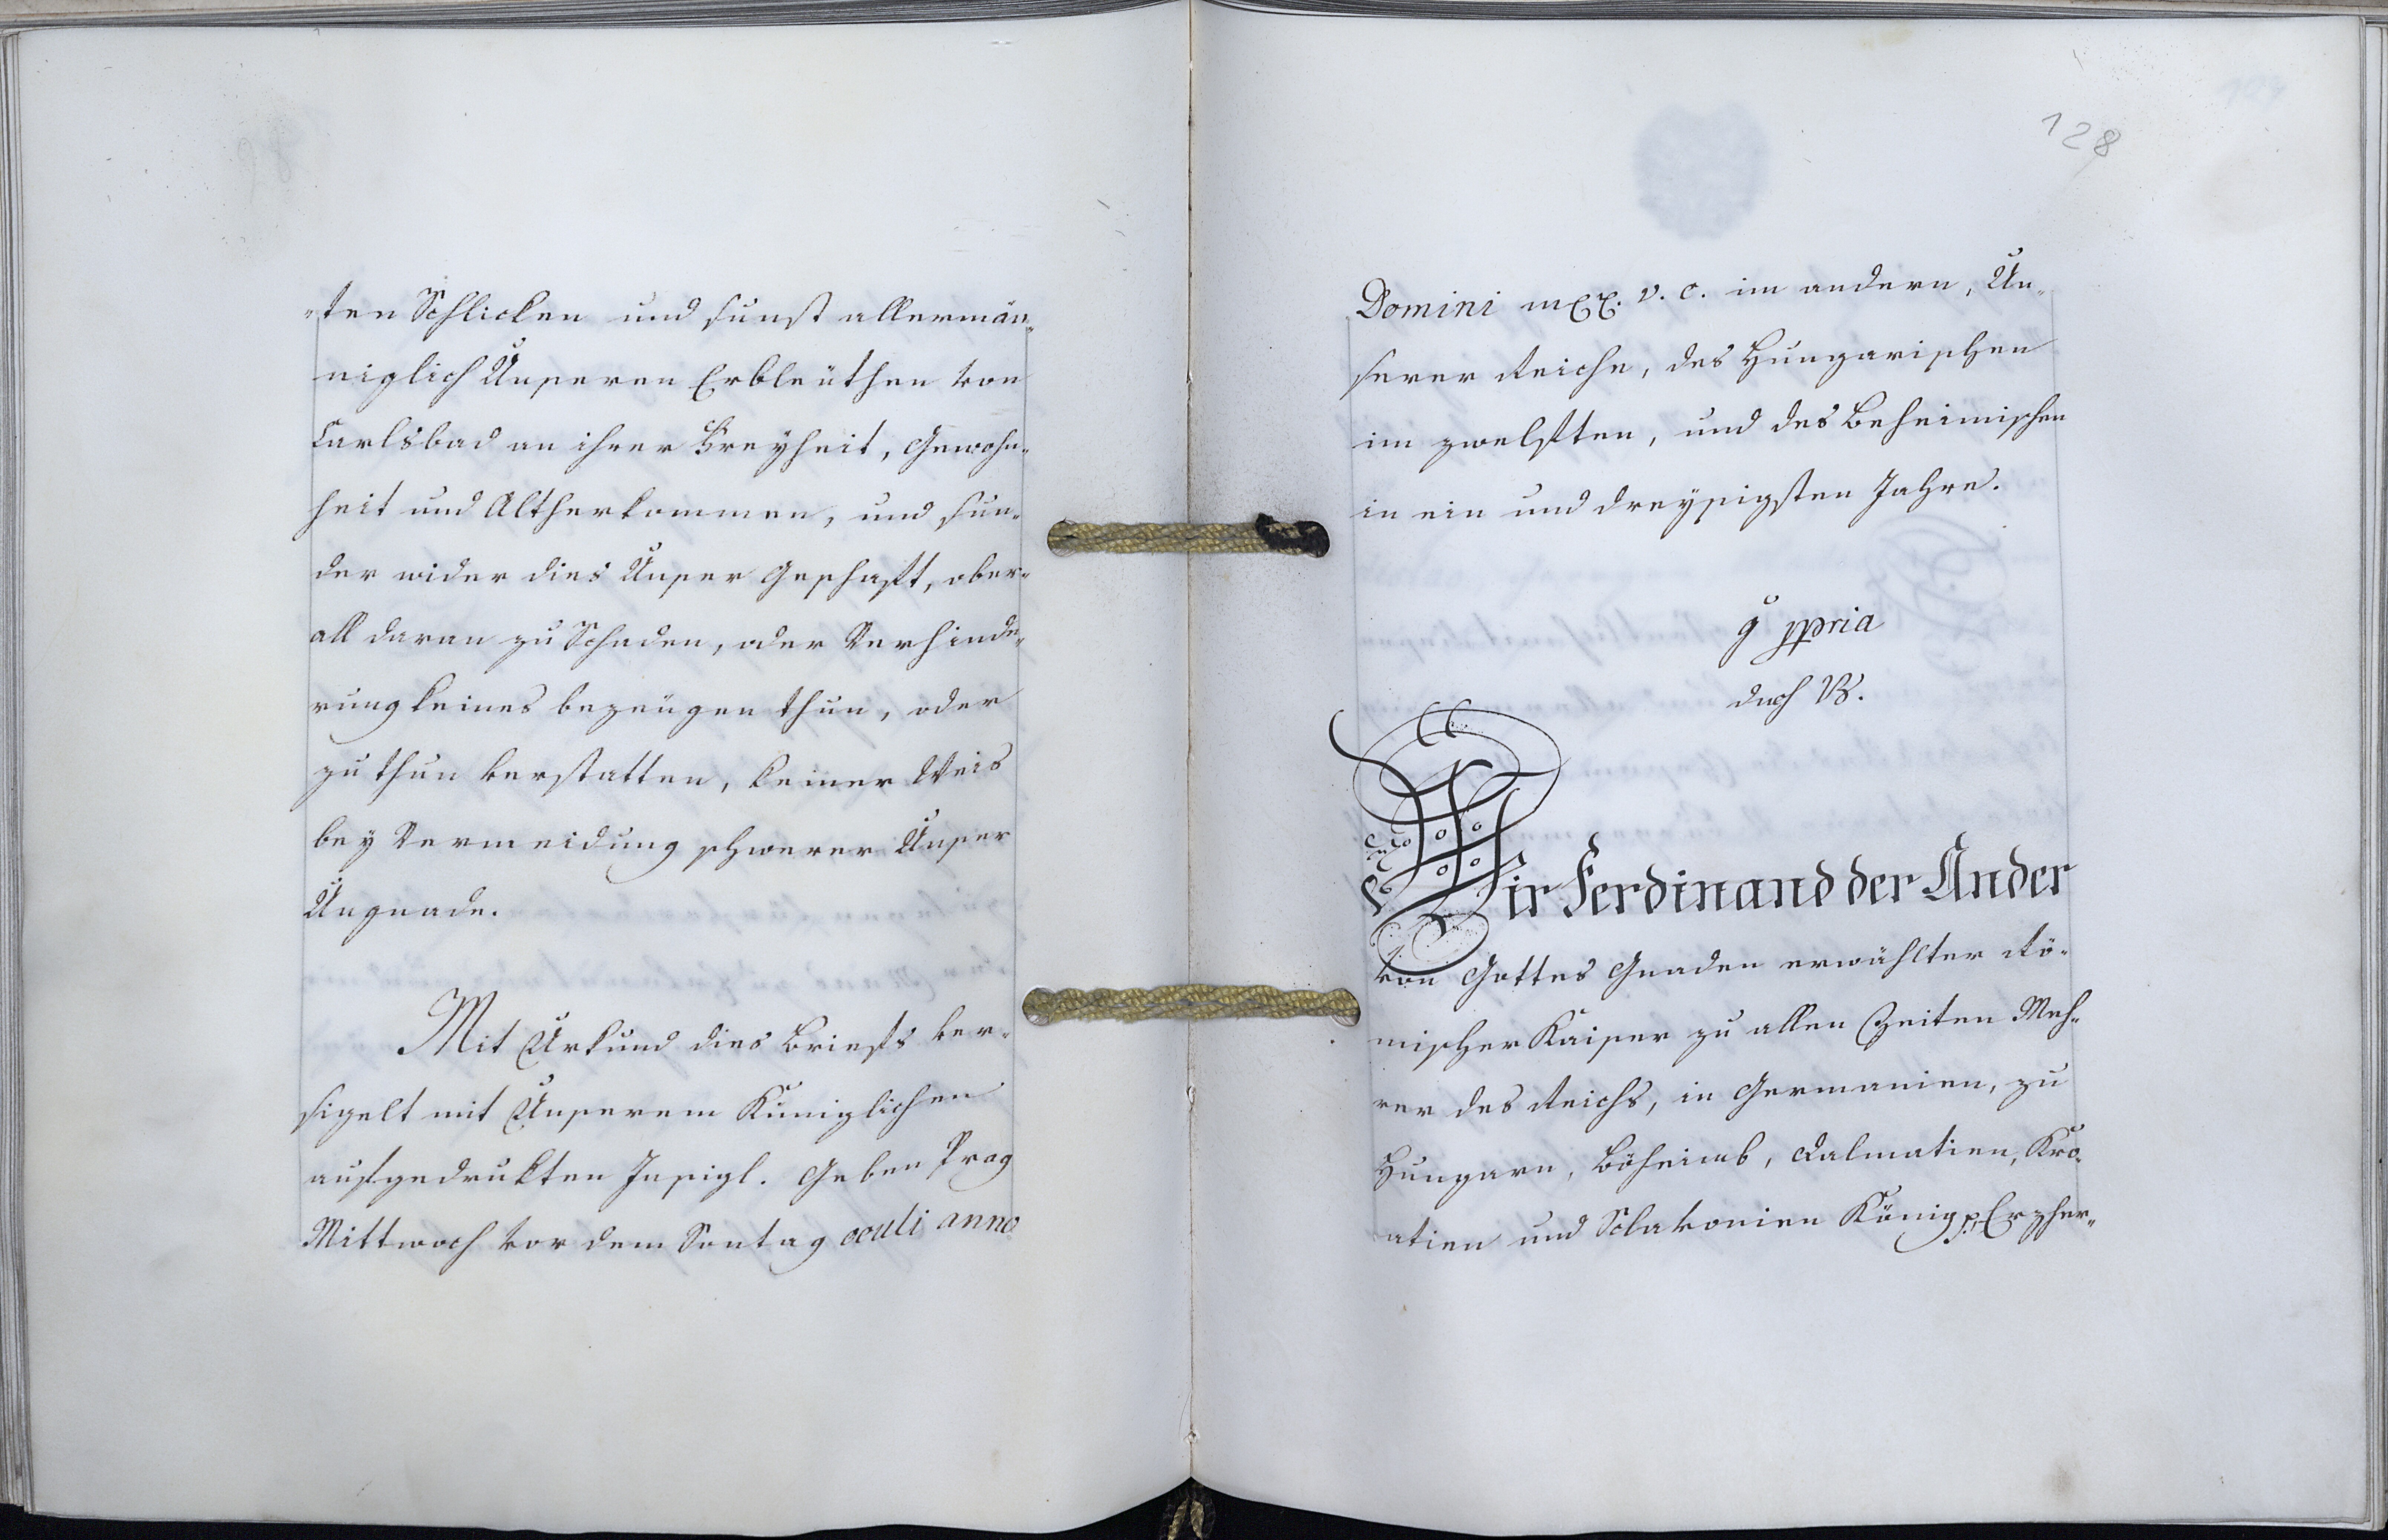 „ten Schlicken und sunst allermän„
niglich Unseren Erbleuthen von
Carlsbad an ihrer Freyheit, Gewohn„
heit und Altherkommen, und sun„
der wider dies Unser Geschaft, ober„
all daran zu Schaden, oder Verhinde„
rung keines bezeugen thun, oder
zu thun verstatten, keiner Weis
bey Vermeidung schwerer Unser
Ungnade.
Mit Urkund dies Briefs ver„
sigelt mit Unserem Kuniglichen
aufgedrukten Insigl. Geben Prag
Mittwoch vor dem Sontag oculi anno
128
Domini v. c. im andern, Un„
serer Reiche, des Hungarischen
im zwelften, und des Beheimischen
in ein und dreyssigsten Jahre.
ppria
Wir Ferdinand der Ander
von Gottes Gnaden erwählter Rö„
mischer Kaiser zu allen Zeiten Meh„
rer des Reichs, in Germanien, zu
Hungarn, Böheimb, Dalmatien, Kro„
atien und Sclavonien König p. Erzher„